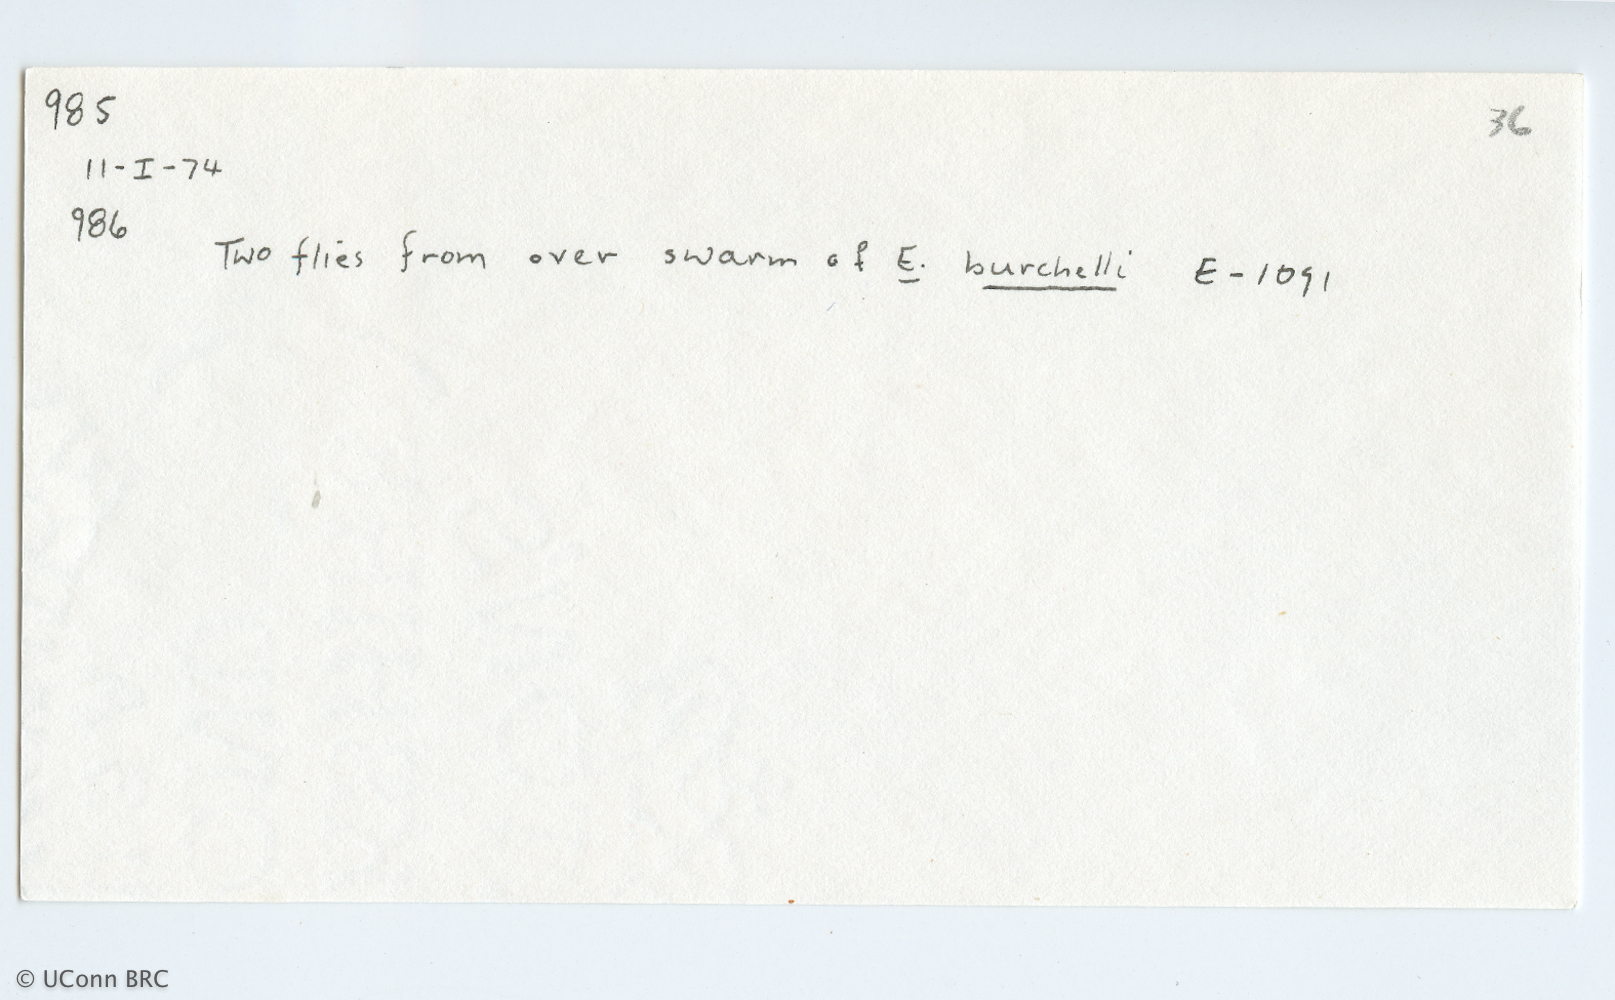 985
36
11-I-74
986
Two flies from over swarm of E. burchelli E-1091
© UConn BRC